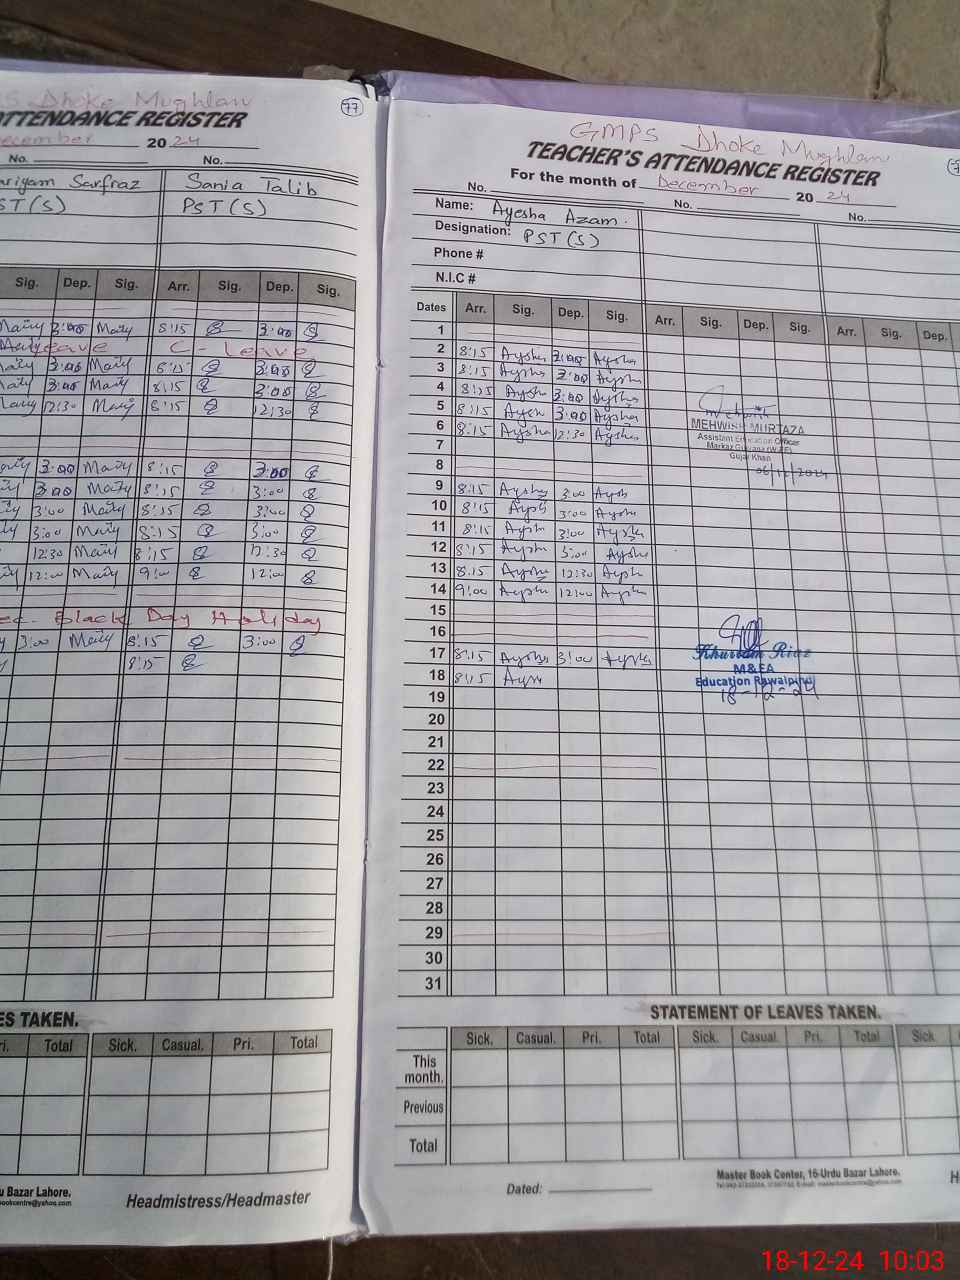 77
Dhoke Mughlan
ATTENDANCE REGISTER
December 2024
No. No.
Sarfraz Sania Talib
PST(S)
Sig. Dep. Sig. Arr. Sig. Dep. Sig.
3:00 Maity 8:15 3:00
leave C-leave
3:00 Maity 8:15 3:00
3:00 Maity 8:15 3:00
12:30 Maity 8:15 12:30
3:00 Maity 8:15 3:00
3:00 Maity 8:15 3:00
3:00 Maity 8:15 3:00
3:00 Maity 8:15 3:00
12:30 Maity 8:15 12:30
12:00 Maity 9:00 12:00
Black Day Holiday
3:00 Maity 8:15 3:00
8:15
ES TAKEN.
Pri. Total Sick. Casual. Pri. Total
Urdu Bazar Lahore.
Headmistress/Headmaster
GMPS Dhoke Mughlan
TEACHER'S ATTENDANCE REGISTER
For the month of December 2024
No. No. No.
Name: Ayesha Azam.
Designation: PST(S)
Phone #
N.I.C #
Dates Arr. Sig. Dep. Sig. Arr. Sig. Dep. Sig. Arr. Sig. Dep.
1
2 8:15 Aysha 3:00 Aysha
3 8:15 Aysha 3:00 Aysha
4 8:15 Aysha 3:00 Aysha
5 8:15 Aysh 3:00 Aysha
6 8:15 Aysha 12:30 Aysha
MEHWISH MURTAZA
Assistant Education Officer
Gujar Khan
06/12/2024
7
8
9 8:15 Aysha 3:00 Aysh
10 8:15 Aysh 3:00 Aysha
11 8:15 Aysh 3:00 Aysha
12 8:15 Aysh 3:00 Aysha
13 8:15 Aysha 12:30 Aysh
14 9:00 Aysha 12:00 Aysha
15
16
17 8:15 Aysha 3:00 Aysha
18 8:15 Aysh
Khurram Riaz
M&EA
Education Rawalpindi
18-12-24
19
20
21
22
23
24
25
26
27
28
29
30
31
STATEMENT OF LEAVES TAKEN.
Sick. Casual. Pri. Total Sick. Casual. Pri. Total Sick
This month.
Previous
Total
Master Book Center, 16-Urdu Bazar Lahore.
Dated:
18-12-24 10:03